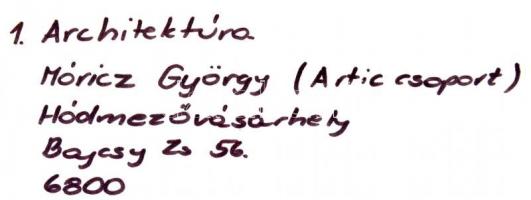 1. Architektúra
Móricz György (Artic csoport)
Hódmezővásárhely
Bajcsy Zs 56.
6800